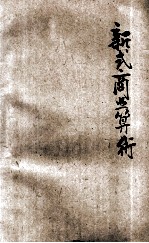 新式商业算術